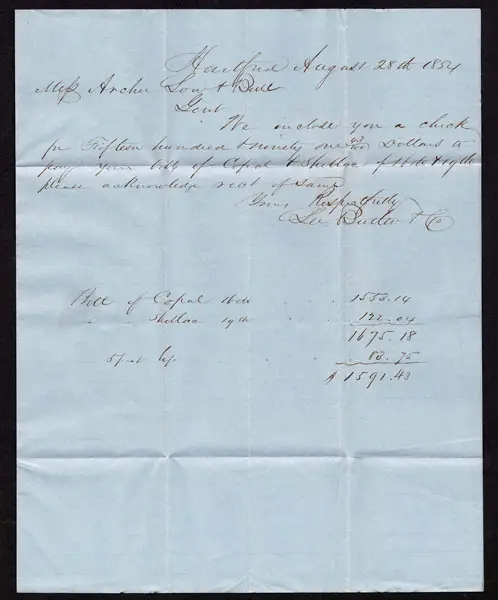 Hartford August 28th 1854
Mess Archer Son & Bull
Gent
We inclose you a check
for Fifteen hundred & ninety one 43/100 Dollars to
pay your bills of Copal & Shellac of 16th & 19th
please acknowledge rect of same
Yours Respectfully
Lee Butler & Co
Bill of Copal 16th . . 1553.14
" Shellac 19th . . 122.04
1675.18
5 pr ct . 83.75
$1591.43